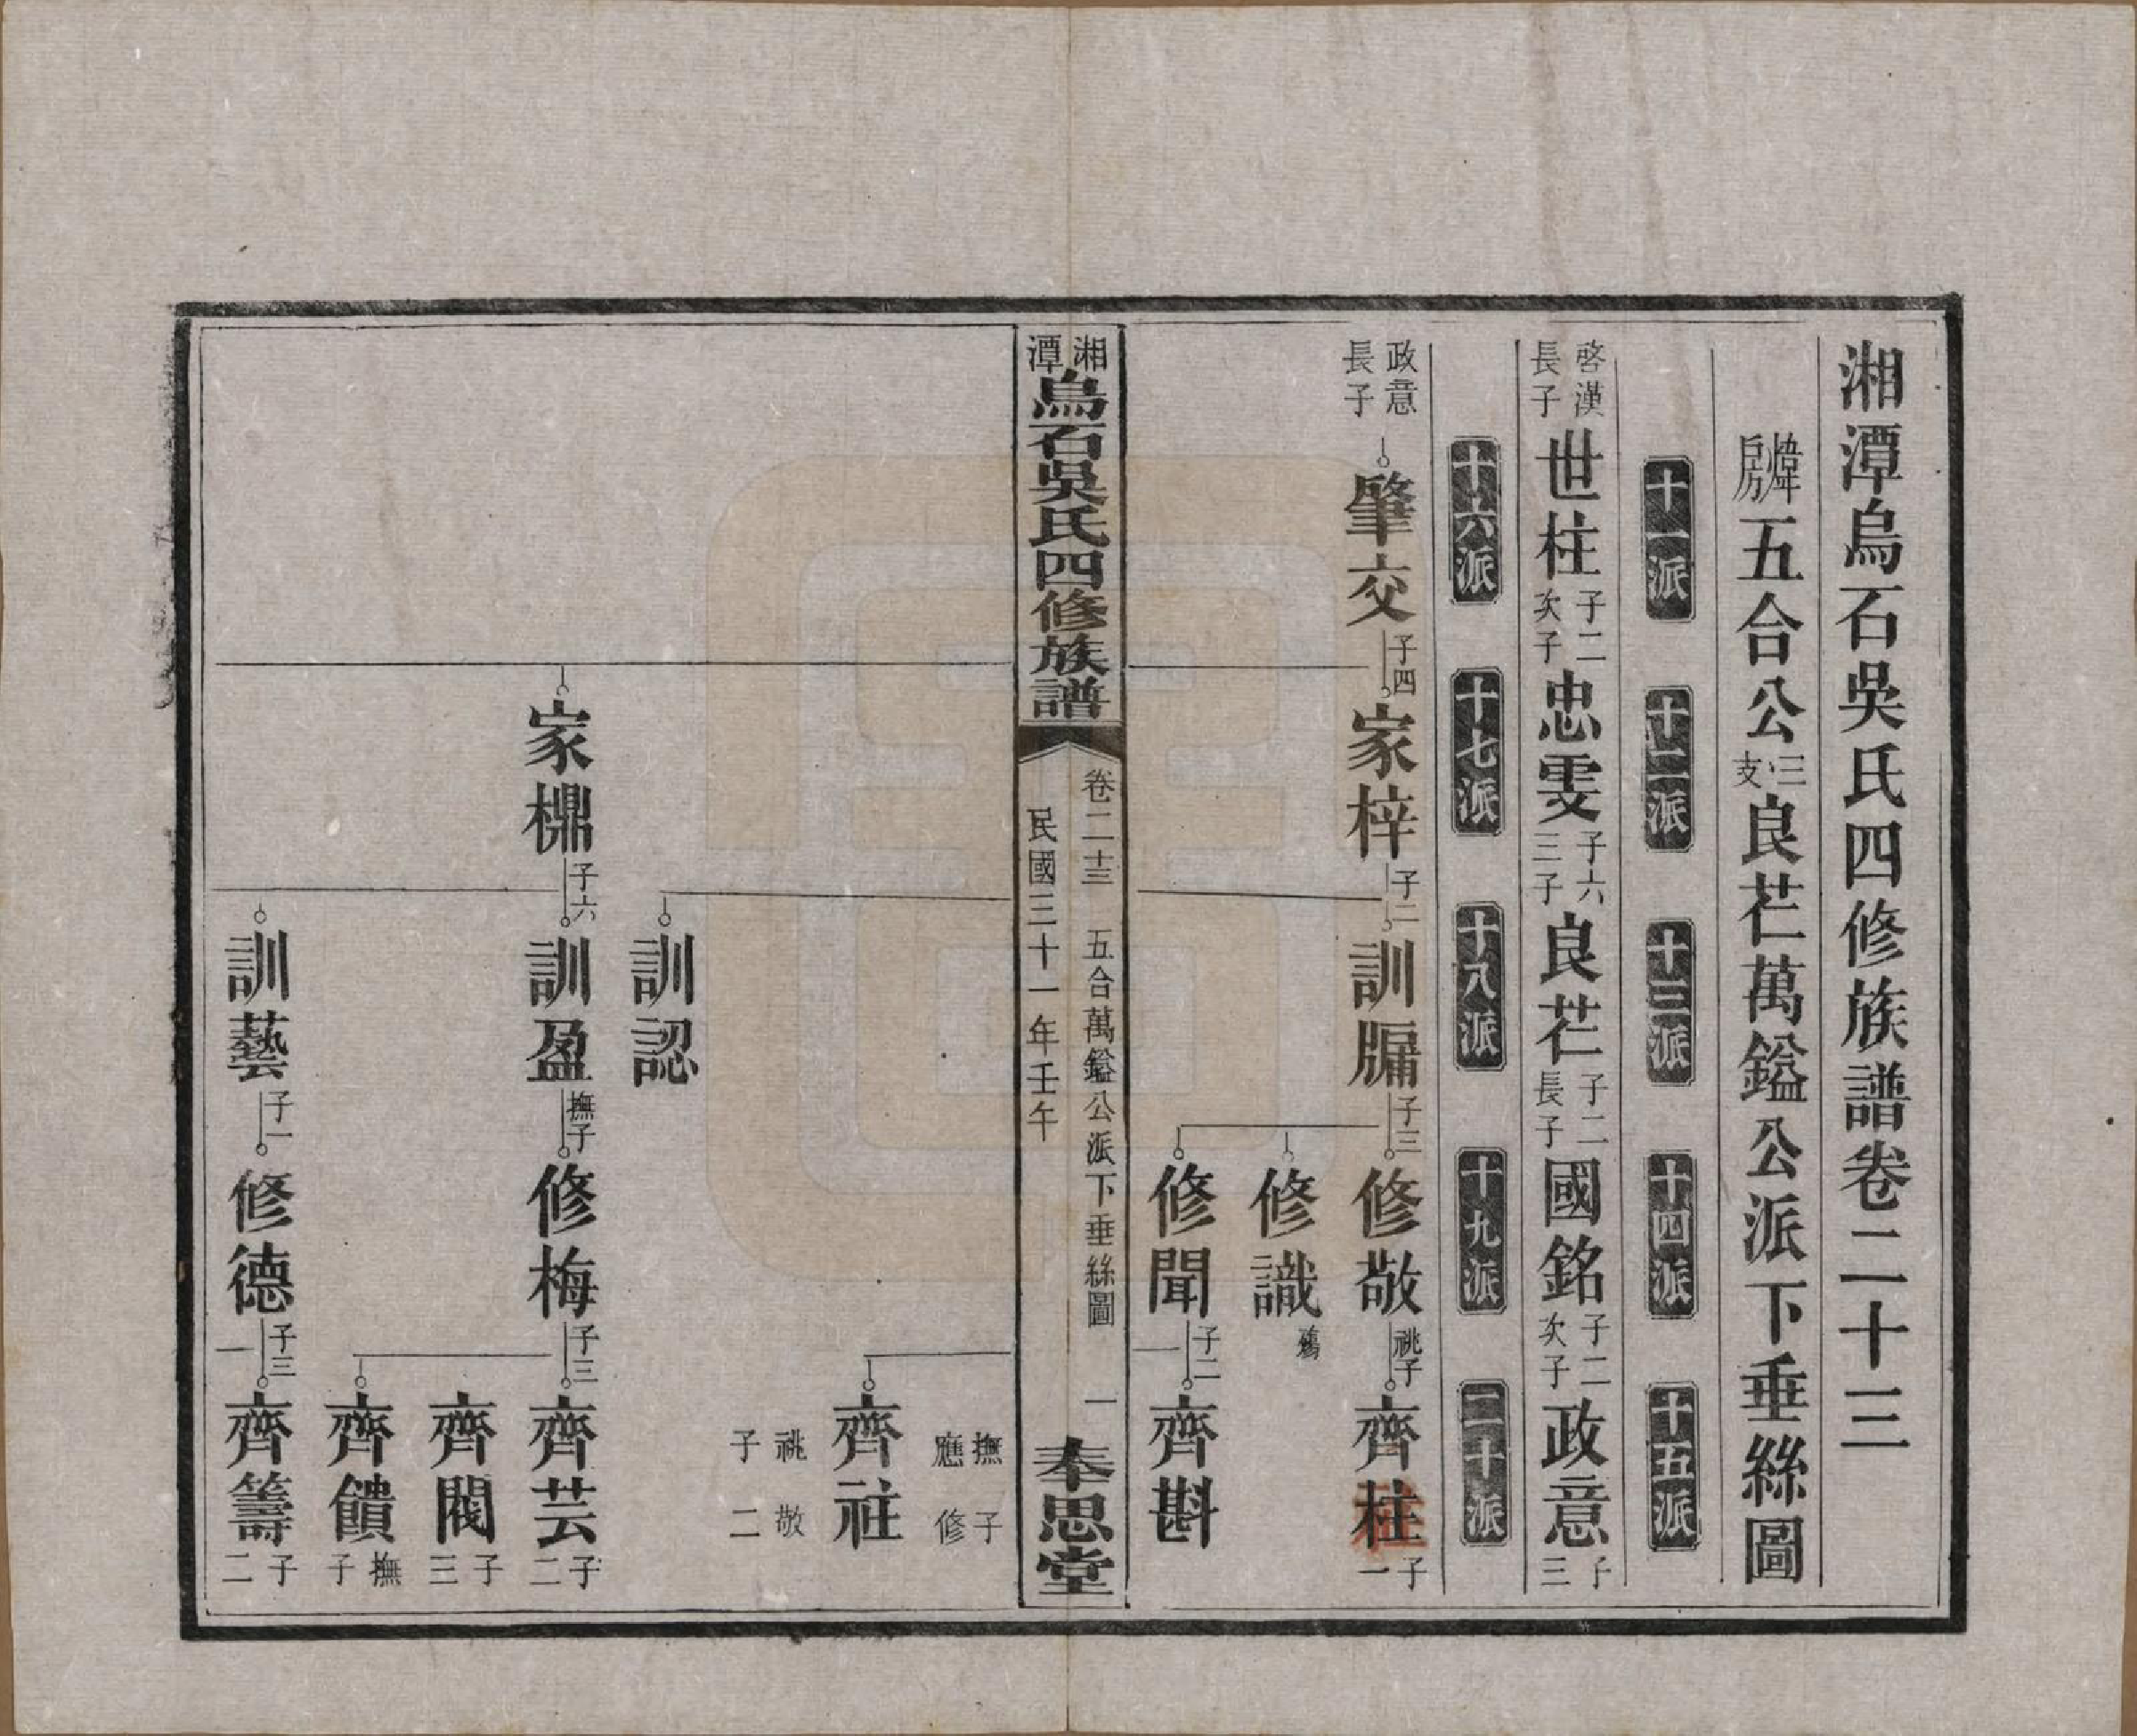 湘潭烏石吳氏四修族譜卷二十三
煒房五合公三支良芢萬鎰公派下垂絲圖
十一派 十二派 十三派 十四派 十五派
啓漢長子世柱子二次子忠雯子六三子良芢子二長子國銘子二次子政意子三
十六派 十七派 十八派 十九派 二十派
政意長子肇交子四家梓子二訓牖子三修敬祧子齊柱子一
修識
修聞子二齊斟
湘潭烏石吳氏四修族譜
卷二十三 五合萬鎰公派下垂絲圖 一
民國三十一年壬午
奉思堂
撫子應修
齊祉
祧敬子二
訓認
家㯲子六訓盈撫子修梅子三齊芸子二
齊閥子三
齊饋撫子
訓藝子一修德子三齊籌子二